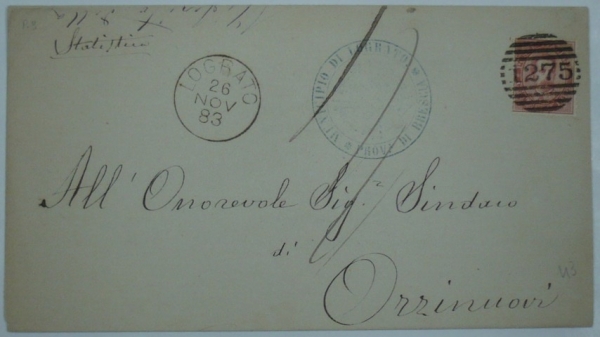 Statistica
LOGRATO
26
NOV
83
MUNICIPIO DI LOGRATO
PROV. DI BRESCIA
1275
All' Onorevole Sig.r Sindaco
di
Orzinuovi